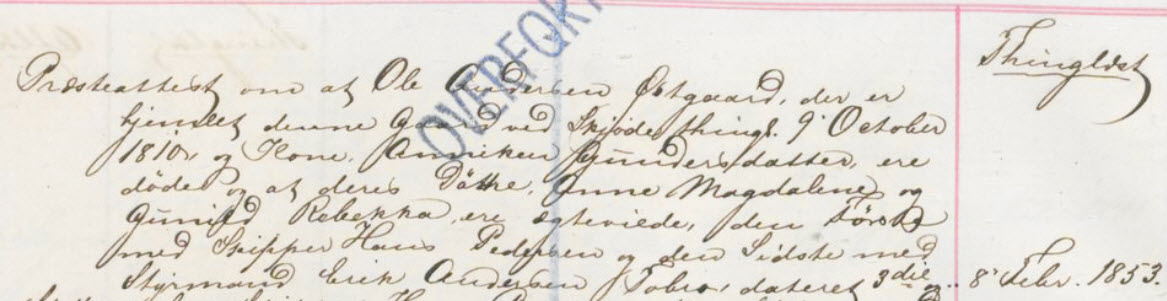 Thinglæst
Præsteattest om at Ole Andersen Østgaard, der er
hjemlet denne Gaard ved Skjøde thingl. 9' October
1810, og Kone, Anniken Gundersdatter, ere
døde og at deres Døttre, Anne Magdalene og
Gunild Rebekka, ere ægteviede, den Første
med Skipper Hans Pedersen og den Sidste med
Styrmand Erik Andersen dateret 3die og
8' Febr. 1853.
OVERFØR